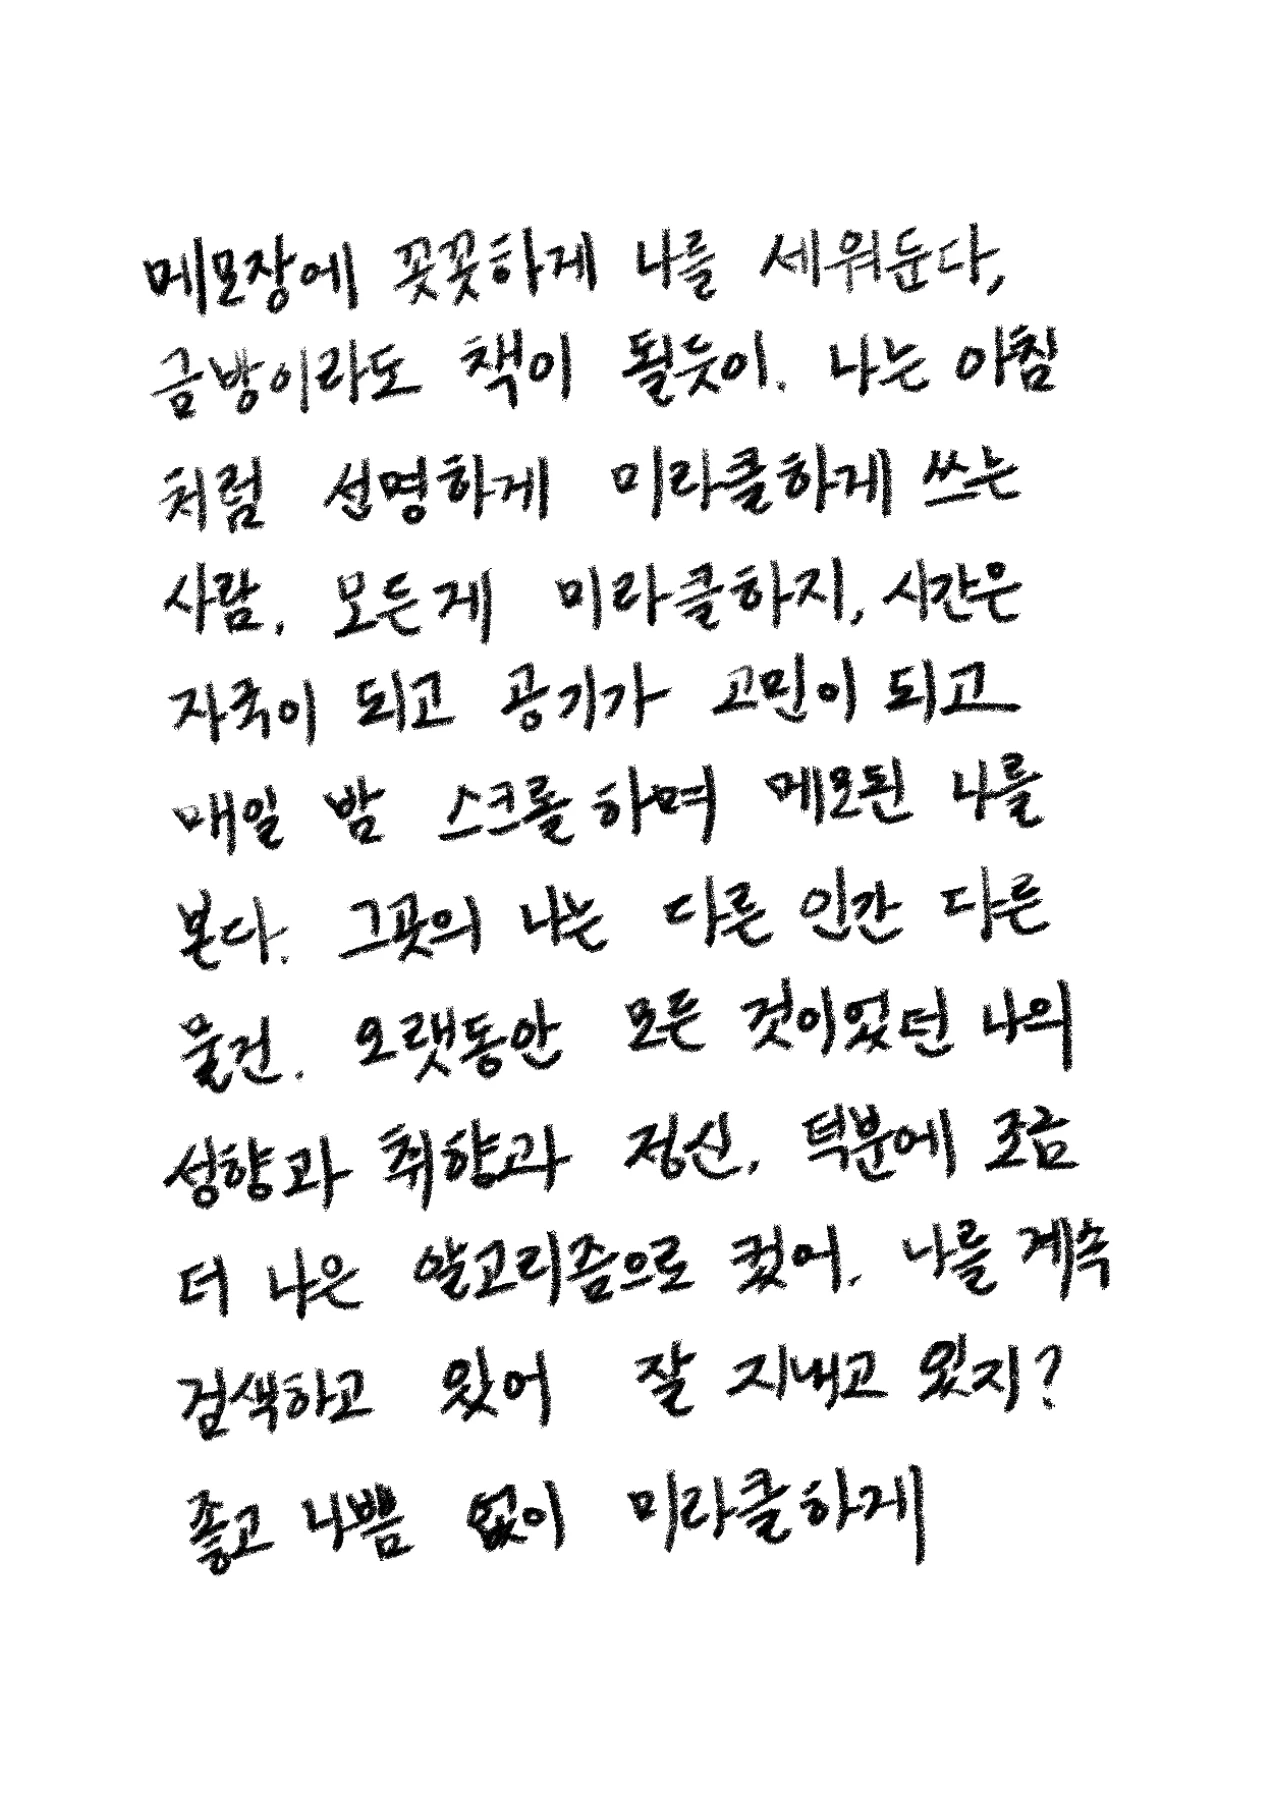 메모장에 꽂꽂하게 나를 세워둔다,
금방이라도 책이 될듯이. 나는 아침
처럼 선명하게 미라클하게 쓰는
사람. 모든게 미라클하지, 시간은
자국이 되고 공기가 고민이 되고
매일 밤 스크롤하며 메모된 나를
본다. 그곳의 나는 다른 인간 다른
물건. 오랫동안 모든 것이었던 나의
성향과 취향과 정신, 턱분에 조금
더 나은 알고리즘으로 컸어. 나를 계속
검색하고 있어 잘 지내고 있지?
좋고 나쁨 없이 미라클하게